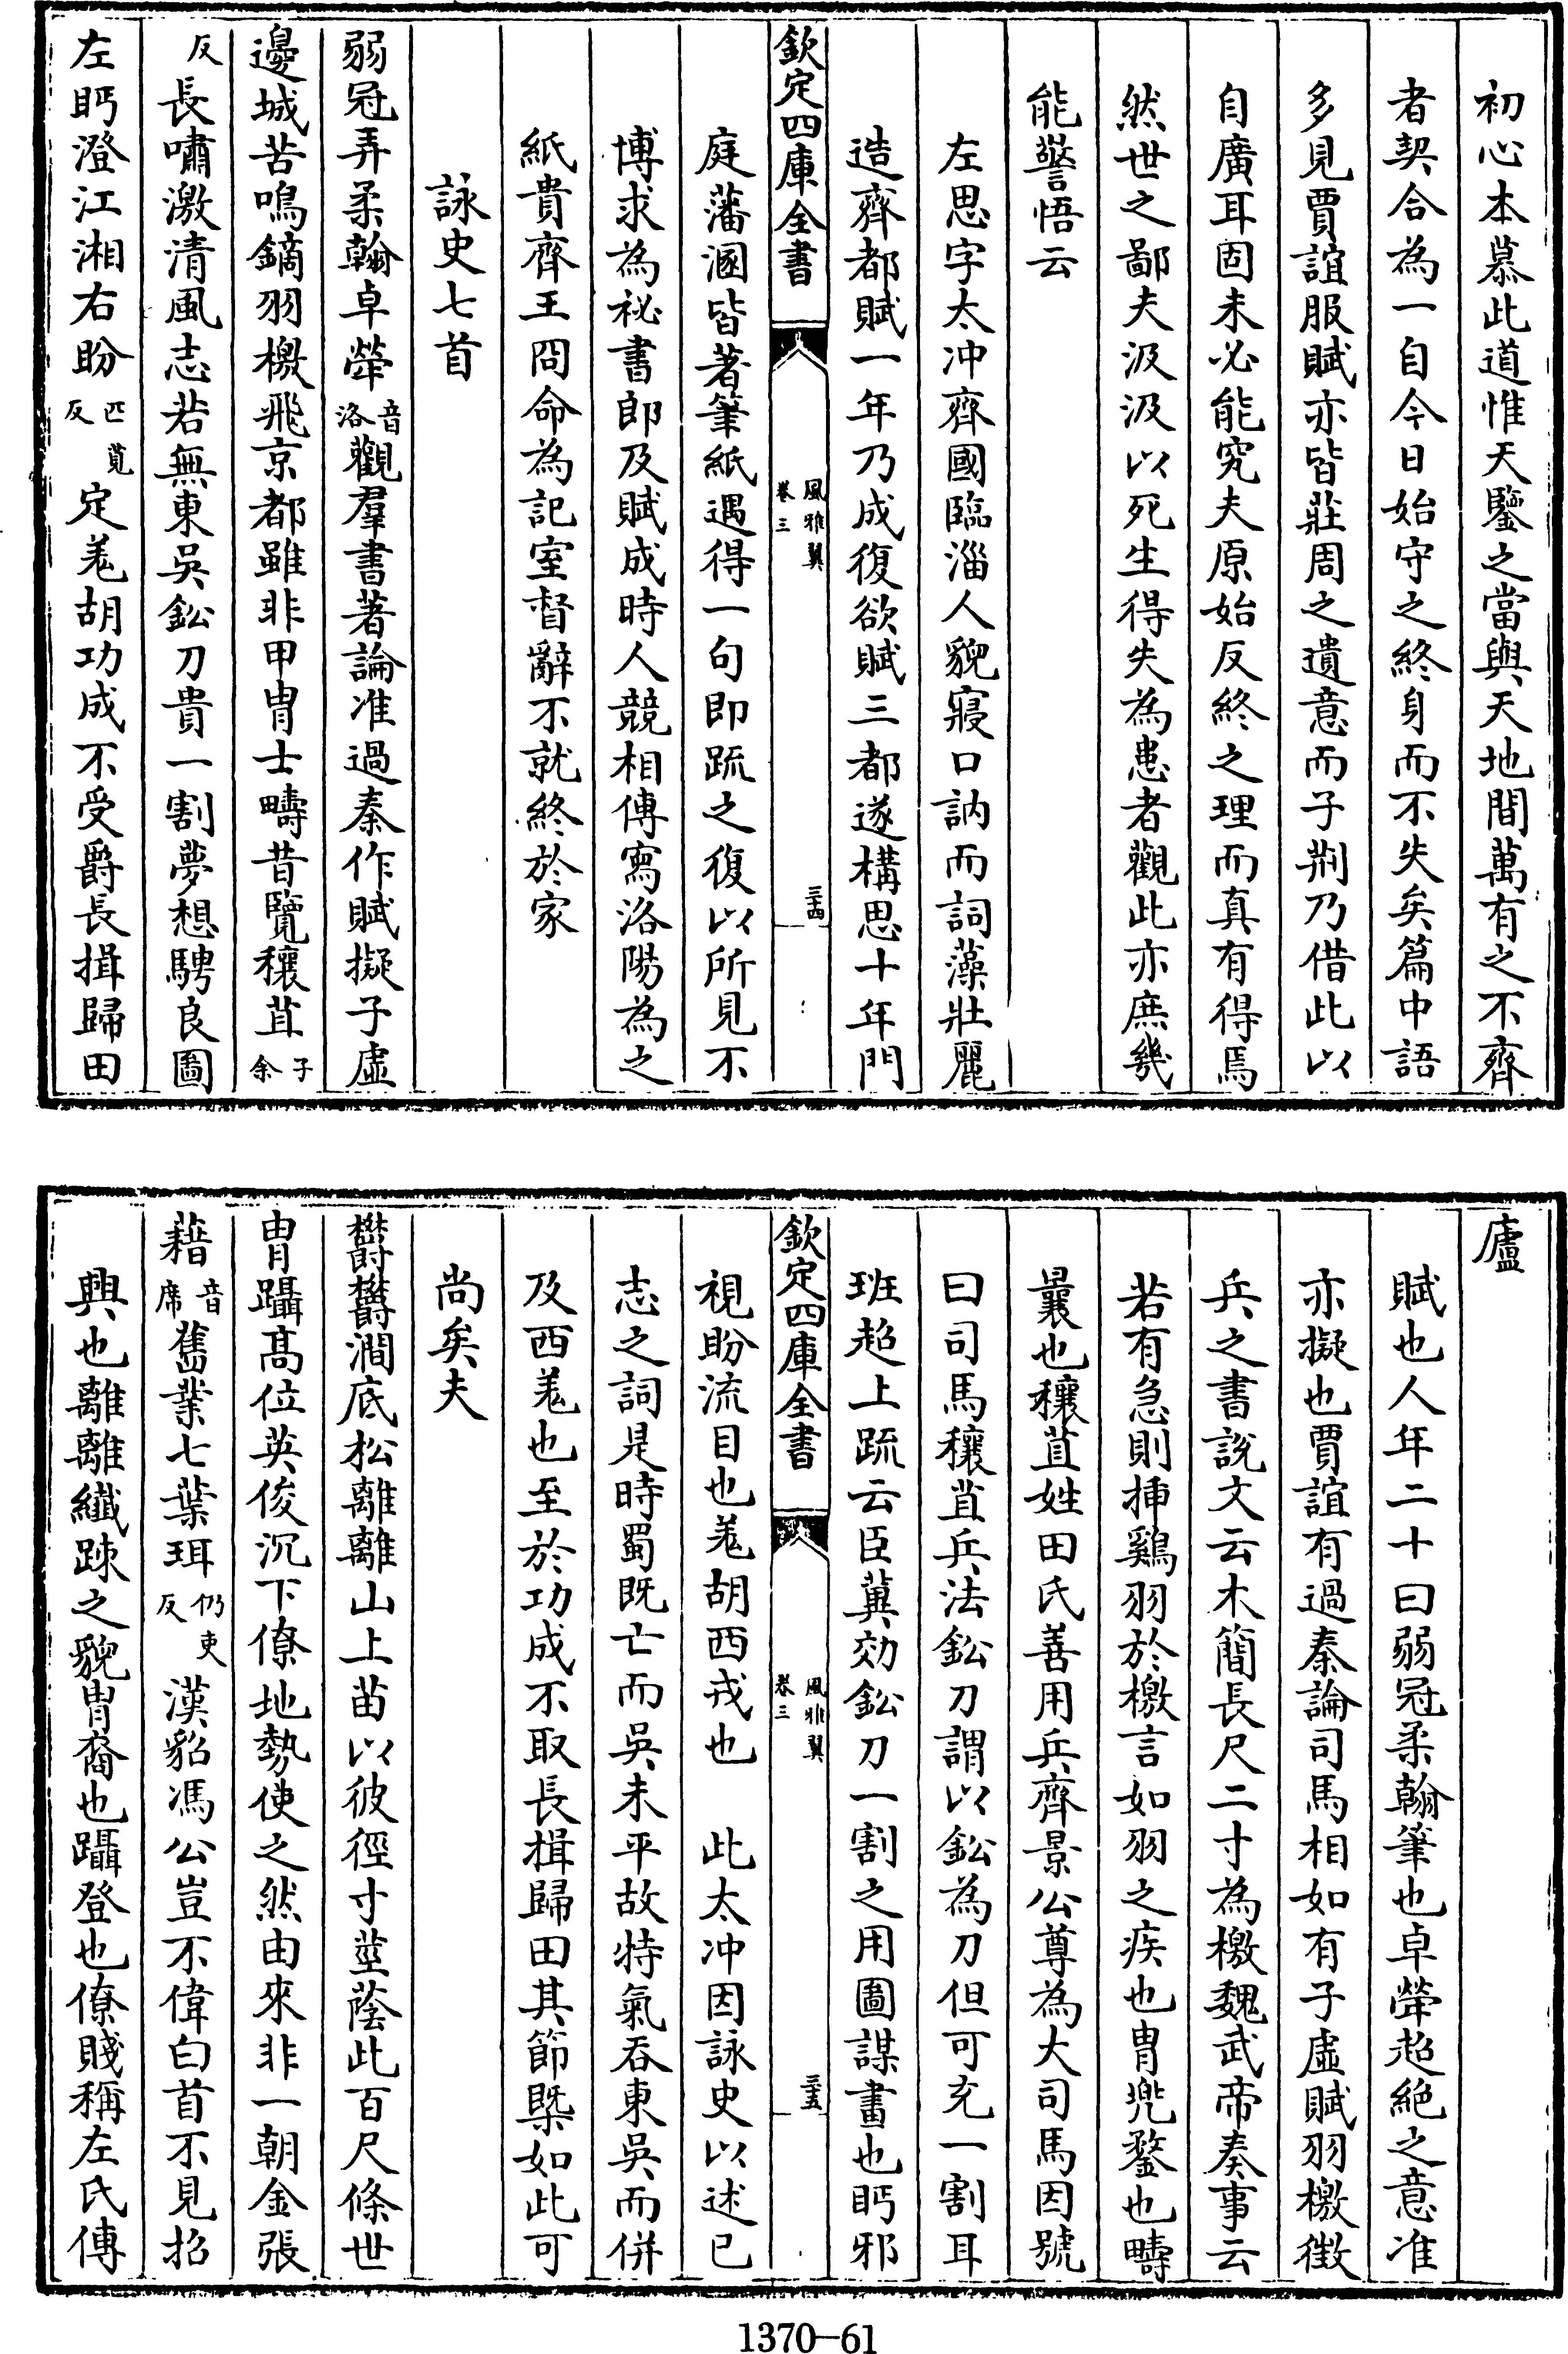 初心本慕此道惟天鑒之當與天地間萬有之不齊
者契合為一自今日始守之終身而不失矣篇中語
多見賈誼服賦亦皆莊周之遺意而子荆乃借此以
自廣耳固未必能究夫原始反終之理而真有得焉
然世之鄙夫汲汲以死生得失為患者觀此亦庶幾
能警悟云
左思字太冲齊國臨淄人貌寢口訥而詞藻壯麗
造齊都賦一年乃成復欲賦三都遂構思十年門
欽定四庫全書
風雅翼
卷三
三十四
庭藩溷皆著筆紙遇得一句即疏之復以所見不
博求為祕書郎及賦成時人競相傳寫洛陽為之
紙貴齊王冏命為記室督辭不就終於家
詠史七首
弱冠弄柔翰卓犖音洛觀羣書著論准過秦作賦擬子虛
邊城苦鳴鏑羽檄飛京都雖非甲冑士疇昔覽穰苴子余
反長嘯激清風志若無東吳鈆刀貴一割夢想騁良圖
左眄澄江湘右盼匹莧反定羗胡功成不受爵長揖歸田
廬
賦也人年二十曰弱冠柔翰筆也卓犖超絶之意准
亦擬也賈誼有過秦論司馬相如有子虛賦羽檄徴
兵之書說文云木簡長尺二寸為檄魏武帝奏事云
若有急則揷鷄羽於檄言如羽之疾也冑兠鍪也疇
曩也穰苴姓田氏善用兵齊景公尊為大司馬因號
曰司馬穰苴兵法鈆刀謂以鈆為刀但可充一割耳
班超上疏云臣兾効鈆刀一割之用圖謀畫也眄邪
欽定四庫全書
風雅翼
卷三
三十五
視盼流目也羗胡西戎也　此太冲因詠史以述已
志之詞是時蜀既亡而吳未平故特氣吞東吳而併
及西羗也至於功成不取長揖歸田其節槩如此可
尚矣夫
欝欝澗底松離離山上苗以彼徑寸莖蔭此百尺條世
冑躡髙位英俊沉下僚地勢使之然由來非一朝金張
藉音席舊業七葉珥仍吏反漢貂馮公豈不偉白首不見招
興也離離纖踈之貌冑裔也躡登也僚賤稱左氏傳
1370—61